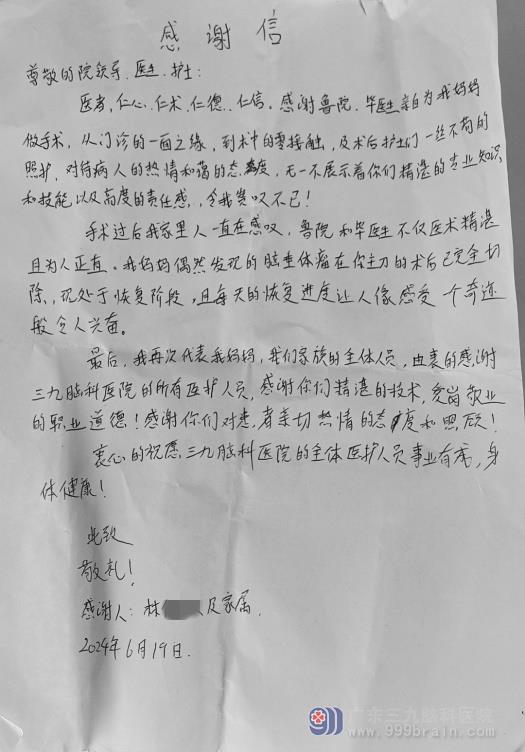 感谢信
尊敬的院领导、医生、护士：
医者，仁心、仁术、仁德、仁信。感谢鲁院、毕医生亲自为我妈妈
做手术，从门诊的一面之缘，到术中的零接触，及术后护士们一丝不苟的
照护，对待病人的热情和蔼的态度，无一不展示着你们精湛的专业知识
和技能以及高度的责任感，令我赞叹不已！
手术过后我家里人一直在感叹，鲁院和毕医生不仅医术精湛
且为人正直。我妈妈偶然发现的脑垂体瘤在你主刀的术后已完全切
除，现处于恢复阶段，且每天的恢复进度让人像感受一个奇迹
般令人兴奋。
最后，我再次代表我妈妈，我们家族的全体人员，由衷的感谢
三九脑科医院的所有医护人员，感谢你们精湛的技术，爱岗敬业
的职业道德！感谢你们对患者亲切热情的态度和照顾！
衷心的祝愿三九脑科医院的全体医护人员事业有成，身
体健康！
此致
敬礼！
感谢人：林 及家属.
2024年6月19日.
广东三九脑科医院
www.999brain.com